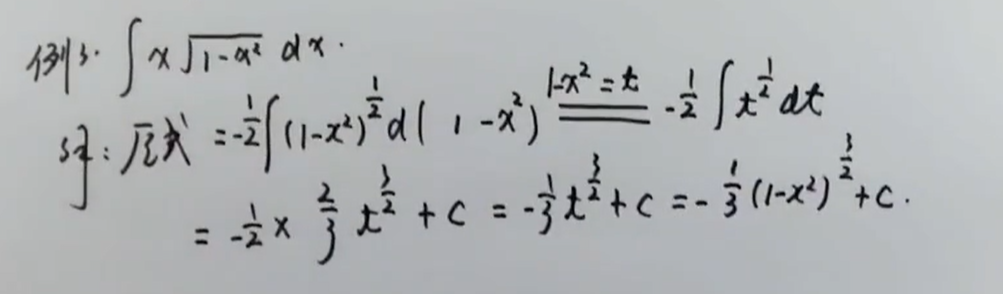 例3. ∫x√(1-x²) dx.
解：原式 = -½∫(1-x²)^½ d(1-x²) =(1-x²=t)= -½∫t^½ dt
= -½ × ⅔ t^(3/2) + C = -⅓ t^(3/2) + C = -⅓ (1-x²)^(3/2) + C.